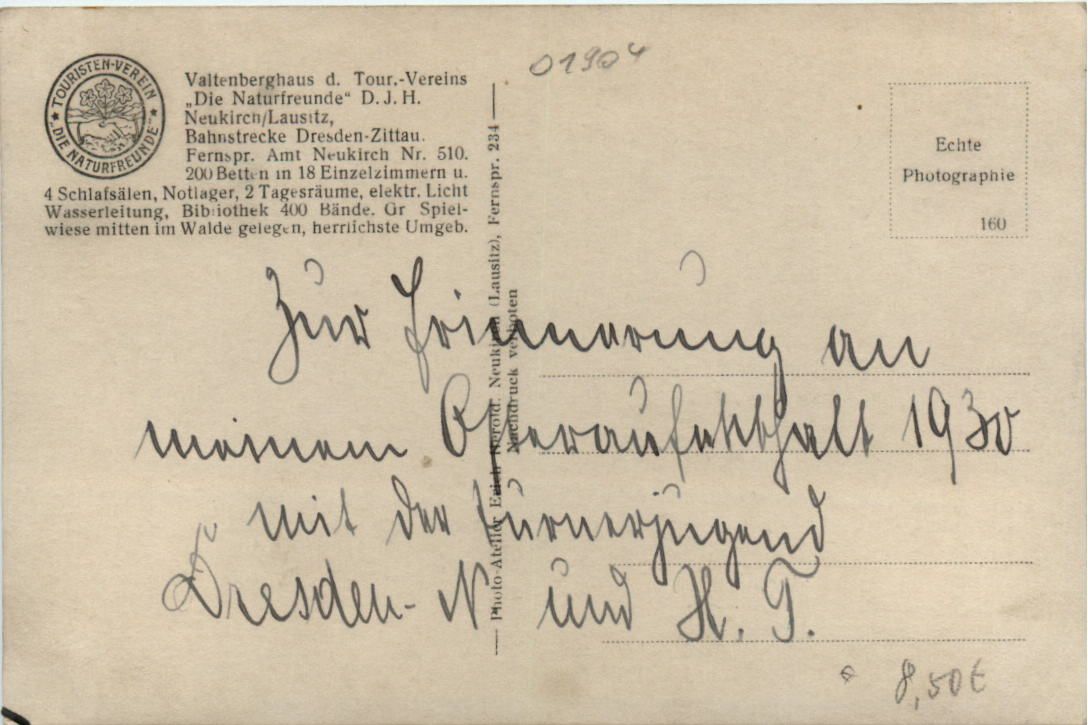 01904
TOURISTEN-VEREIN
"DIE NATURFREUNDE"
Valtenberghaus d. Tour.-Vereins
„Die Naturfreunde“ D. J. H.
Neukirch/Lausitz,
Bahnstrecke Dresden-Zittau.
Fernspr. Amt Neukirch Nr. 510.
200 Betten in 18 Einzelzimmern u.
4 Schlafsälen, Notlager, 2 Tagesräume, elektr. Licht
Wasserleitung, Bibliothek 400 Bände. Gr Spiel-
wiese mitten im Walde gelegen, herrlichste Umgeb.
Echte
Photographie
160
Photo-Atelier Erich Herold, Neukirch (Lausitz), Fernspr. 234
Nachdruck verboten
Zur Erinnerung an
meinem 1930
mit der Turnerjugend
Dresden-N und H. T.
8,50€